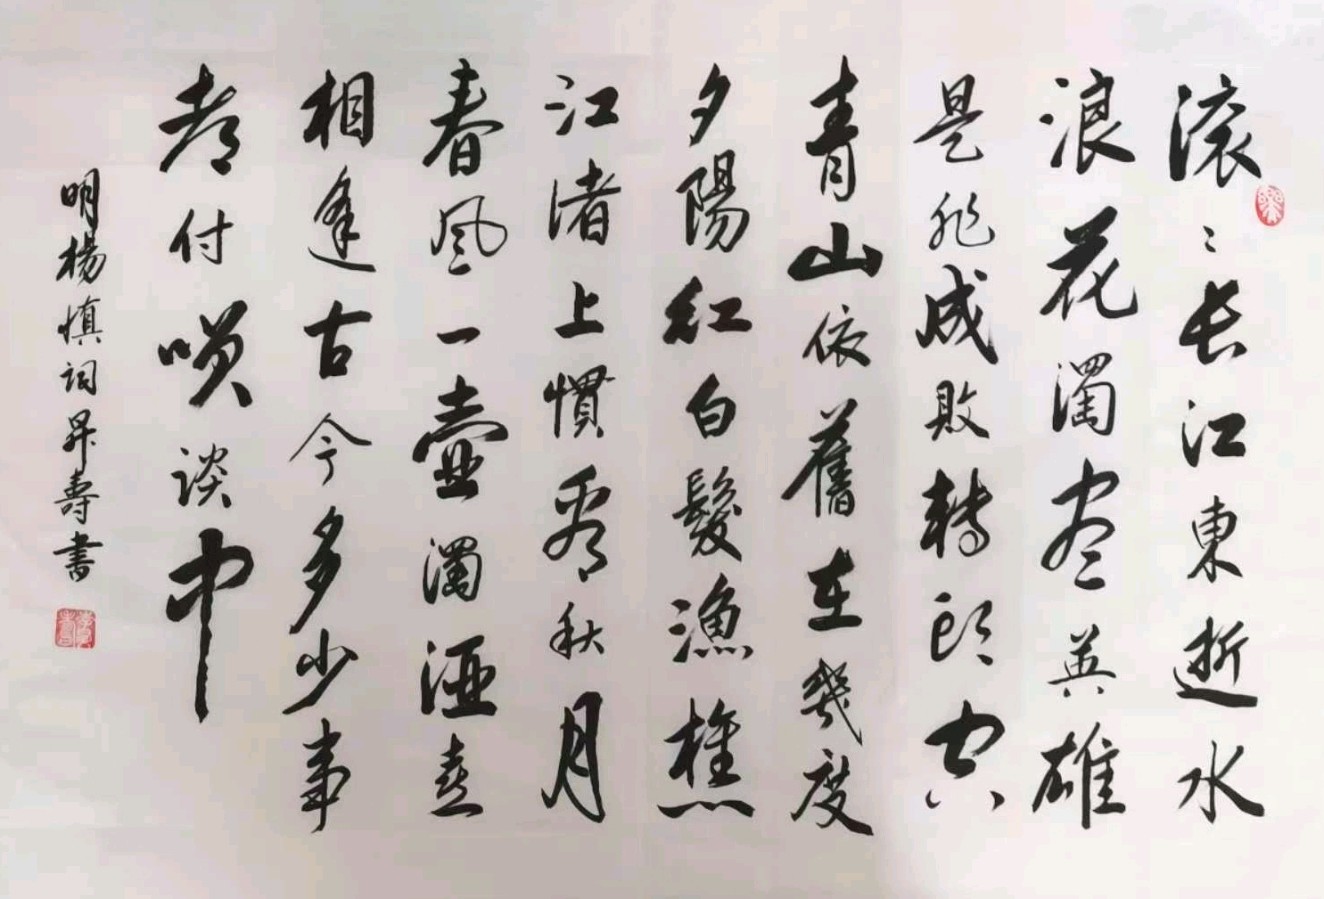 滚〻长江東逝水
浪花濁尽英雄
是非成敗轉頭空
青山依舊在幾度
夕陽紅白髮漁樵
江渚上慣看秋月
春風一壺濁酒喜
相逢古今多少事
都付咲談中
明楊慎詞昇壽書